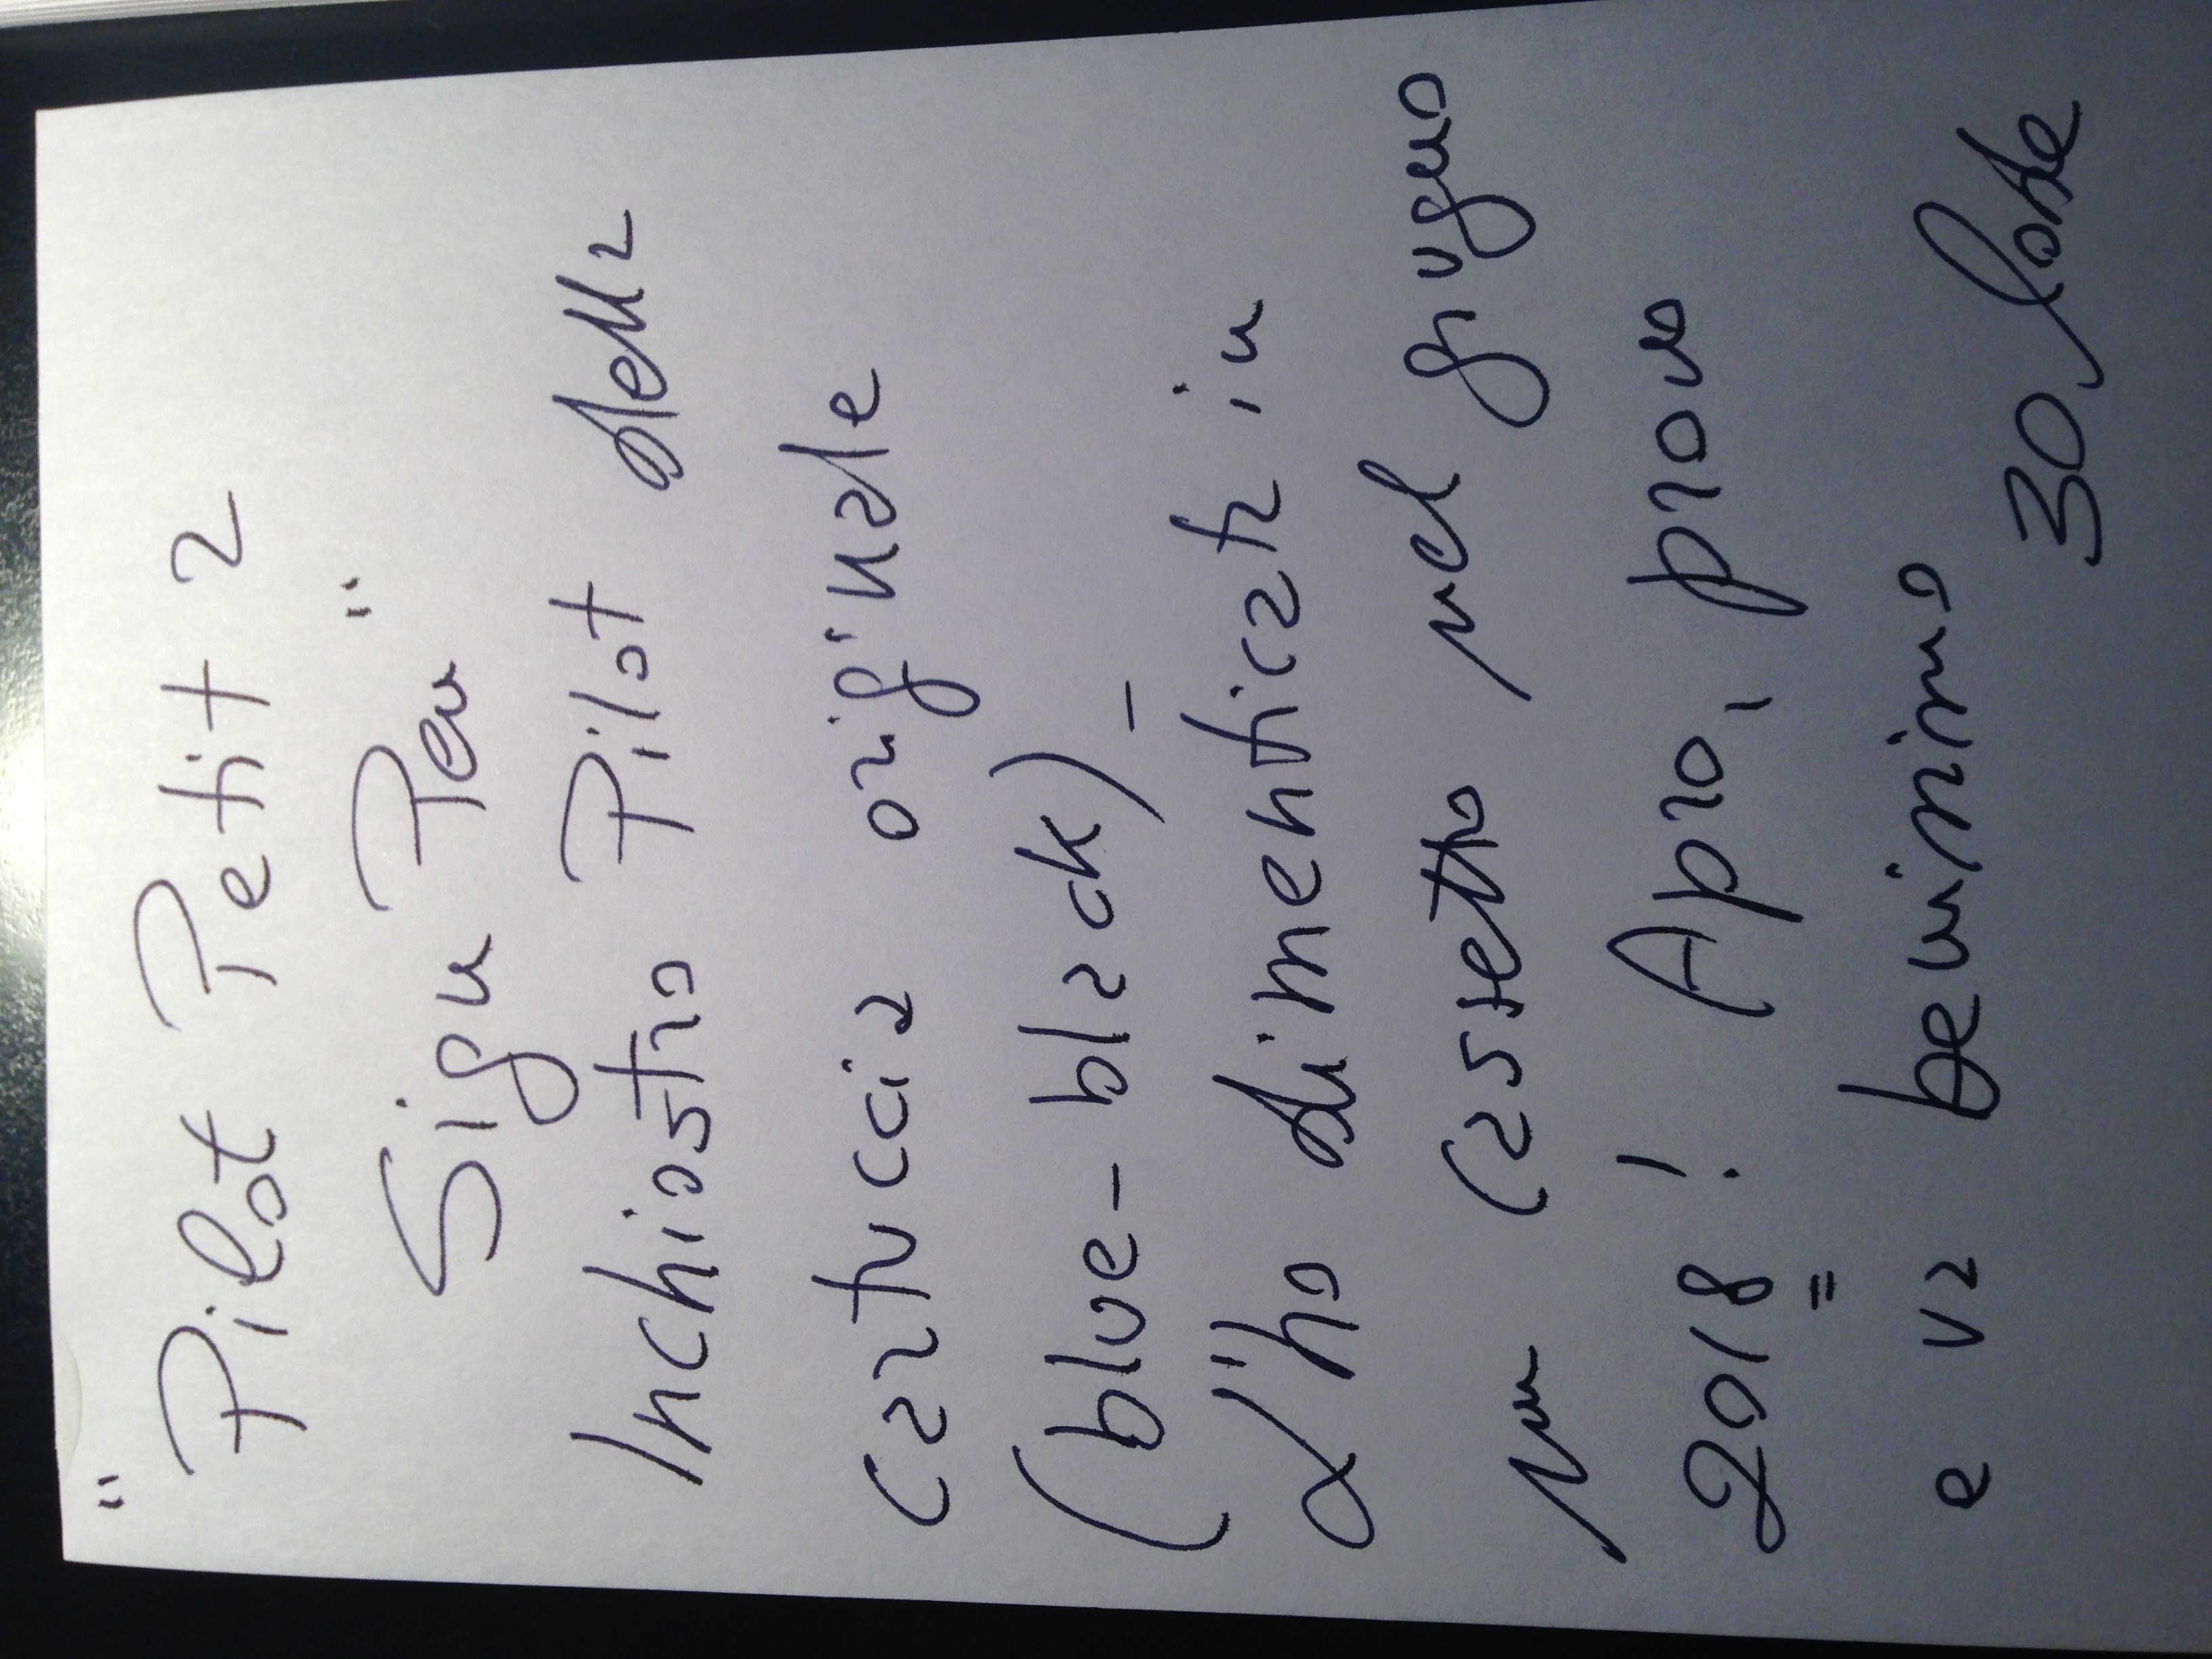 "Pilot Petit 2
Sign Pen"
Inchiostro Pilot della
cartuccia originale
(blue-black) -
L'ho dimenticata in
un cassetto nel giugno
2018! Apro, provo
e va benissimo
30 lode